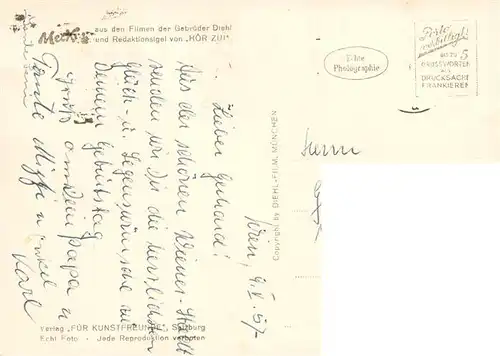 Mecki
aus den Filmen der Gebrüder Diehl
und Redaktionsigel von „HÖR ZU!"
Wien, 9. V. 57
Lieber Gerhard!
Aus der schönen Wiener-Stadt
senden wir Dir die herzlichsten
Glück- u. Segenswünsche zu
Deinem Geburtstag
Gruß an Dein Papa u
Tante u Onkel
Karl
Copyright by DIEHL-FILM, MÜNCHEN
Verlag „FÜR KUNSTFREUNDE", Salzburg
Echt Foto - Jede Reproduktion verboten
Echte
Photographie
Porto
bis zu 5
GRUSSWORTEN
ALS
DRUCKSACHE
FRANKIEREN
Herrn